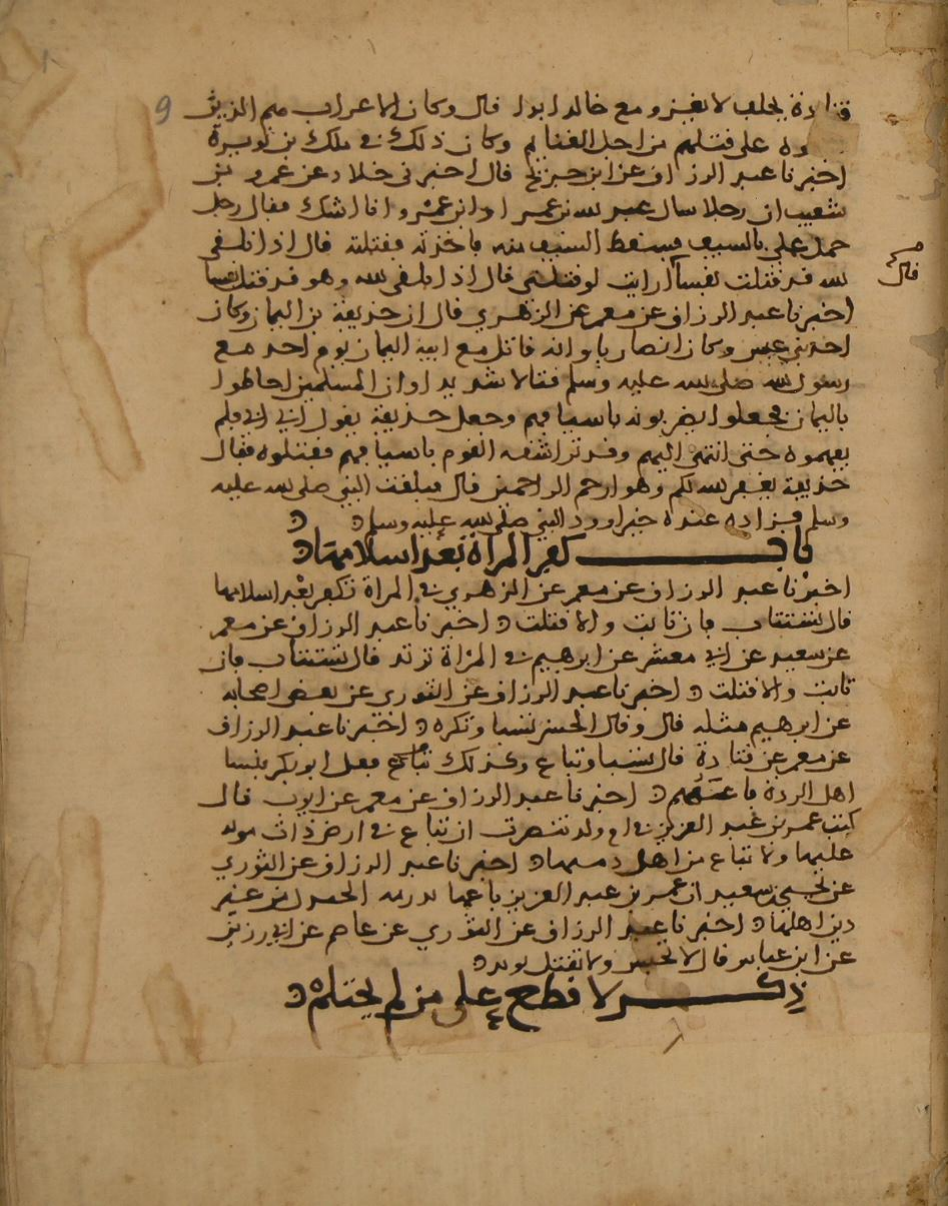 9
قتادة يحلف لا يغزو مع خالد ابدا قال وكان الاعراب هم الذين
وه على قتلهم من اجل الغنايم وكان ذلك في ملك بن نويرة
اخبرنا عبد الرزاق عن ابن جريج قال اخبرني خلاد عن عمرو بن
شعيب ان رجلا سال عبد الله بن عمر او ابن عمرو انا اشك فقال رجل
حمل علي بالسيف فسقط السيف منه فاخذته فقتلته قال اذا تلقى
الله قد قتلت نفسا ارايت لو قتلني قال اذا يلقى الله وهو قد قتل نفسا
قال
اخبرنا عبد الرزاق عن معمر عن الزهري قال ان حذيفة بن اليمان وكان
احد بني عبس وكان انصاريا وانه قاتل مع ابيه اليمان يوم احد مع
رسول الله صلى الله عليه وسلم قتالا شديدا وان المسلمين احاطوا
باليمان فجعلوا يضربونه باسيافهم وجعل حذيفة يقول ابي ابي فلم
يفهموه حتى انتهى اليهم وقد تراشقه القوم باسيافهم فقتلوه فقال
حذيفة يغفر الله لكم وهو ارحم الراحمين قال فبلغت النبي صلى الله عليه
وسلم فزاده عنده خيرا وود النبي صلى الله عليه وسلم
باب كفر المراة بعد اسلامها
اخبرنا عبد الرزاق عن معمر عن الزهري في المراة تكفر بعد اسلامها
قال تستتاب فان تابت والا قتلت اخبرنا عبد الرزاق عن معمر
عن سعيد عن ابي معشر عن ابرهيم في المراة ترتد قال تستتاب فان
تابت والا قتلت اخبرنا عبد الرزاق عن الثوري عن بعض اصحابه
عن ابرهيم مثله قال وقال الحسن تسبا وتكره اخبرنا عبد الرزاق
عن معمر عن قتادة قال تسبا وتباع وكذلك فعل ابو بكر بنسا
اهل الردة باعهم اخبرنا عبد الرزاق عن معمر عن ايوب قال
كتب عمر بن عبد العزيز في ام ولد تنصرت ان تباع في ارض ذات مولة
عليها ولا تباع من اهل دينها اخبرنا عبد الرزاق عن الثوري
عن يحيى بن سعيد ان عمر بن عبد العزيز باعها بدومة الجندل من غير
دين اهلها اخبرنا عبد الرزاق عن الثوري عن عاصم عن ابي رزين
عن ابن عباس قال لا تحبس ولا تقتل
ذكر لا قطع على من لم يحتلم